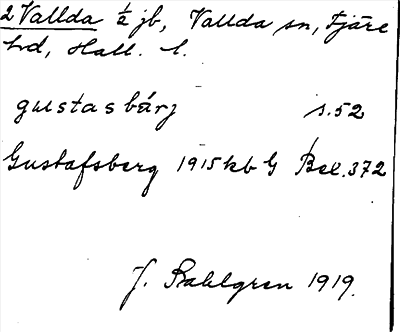 2 Vallda ½ jb, Vallda sn, Fjäre
hd, Hall. l.
gustasbärj s.52
Gustafsberg 1915 kb G Bel.372
J. Bahlgren 1919.